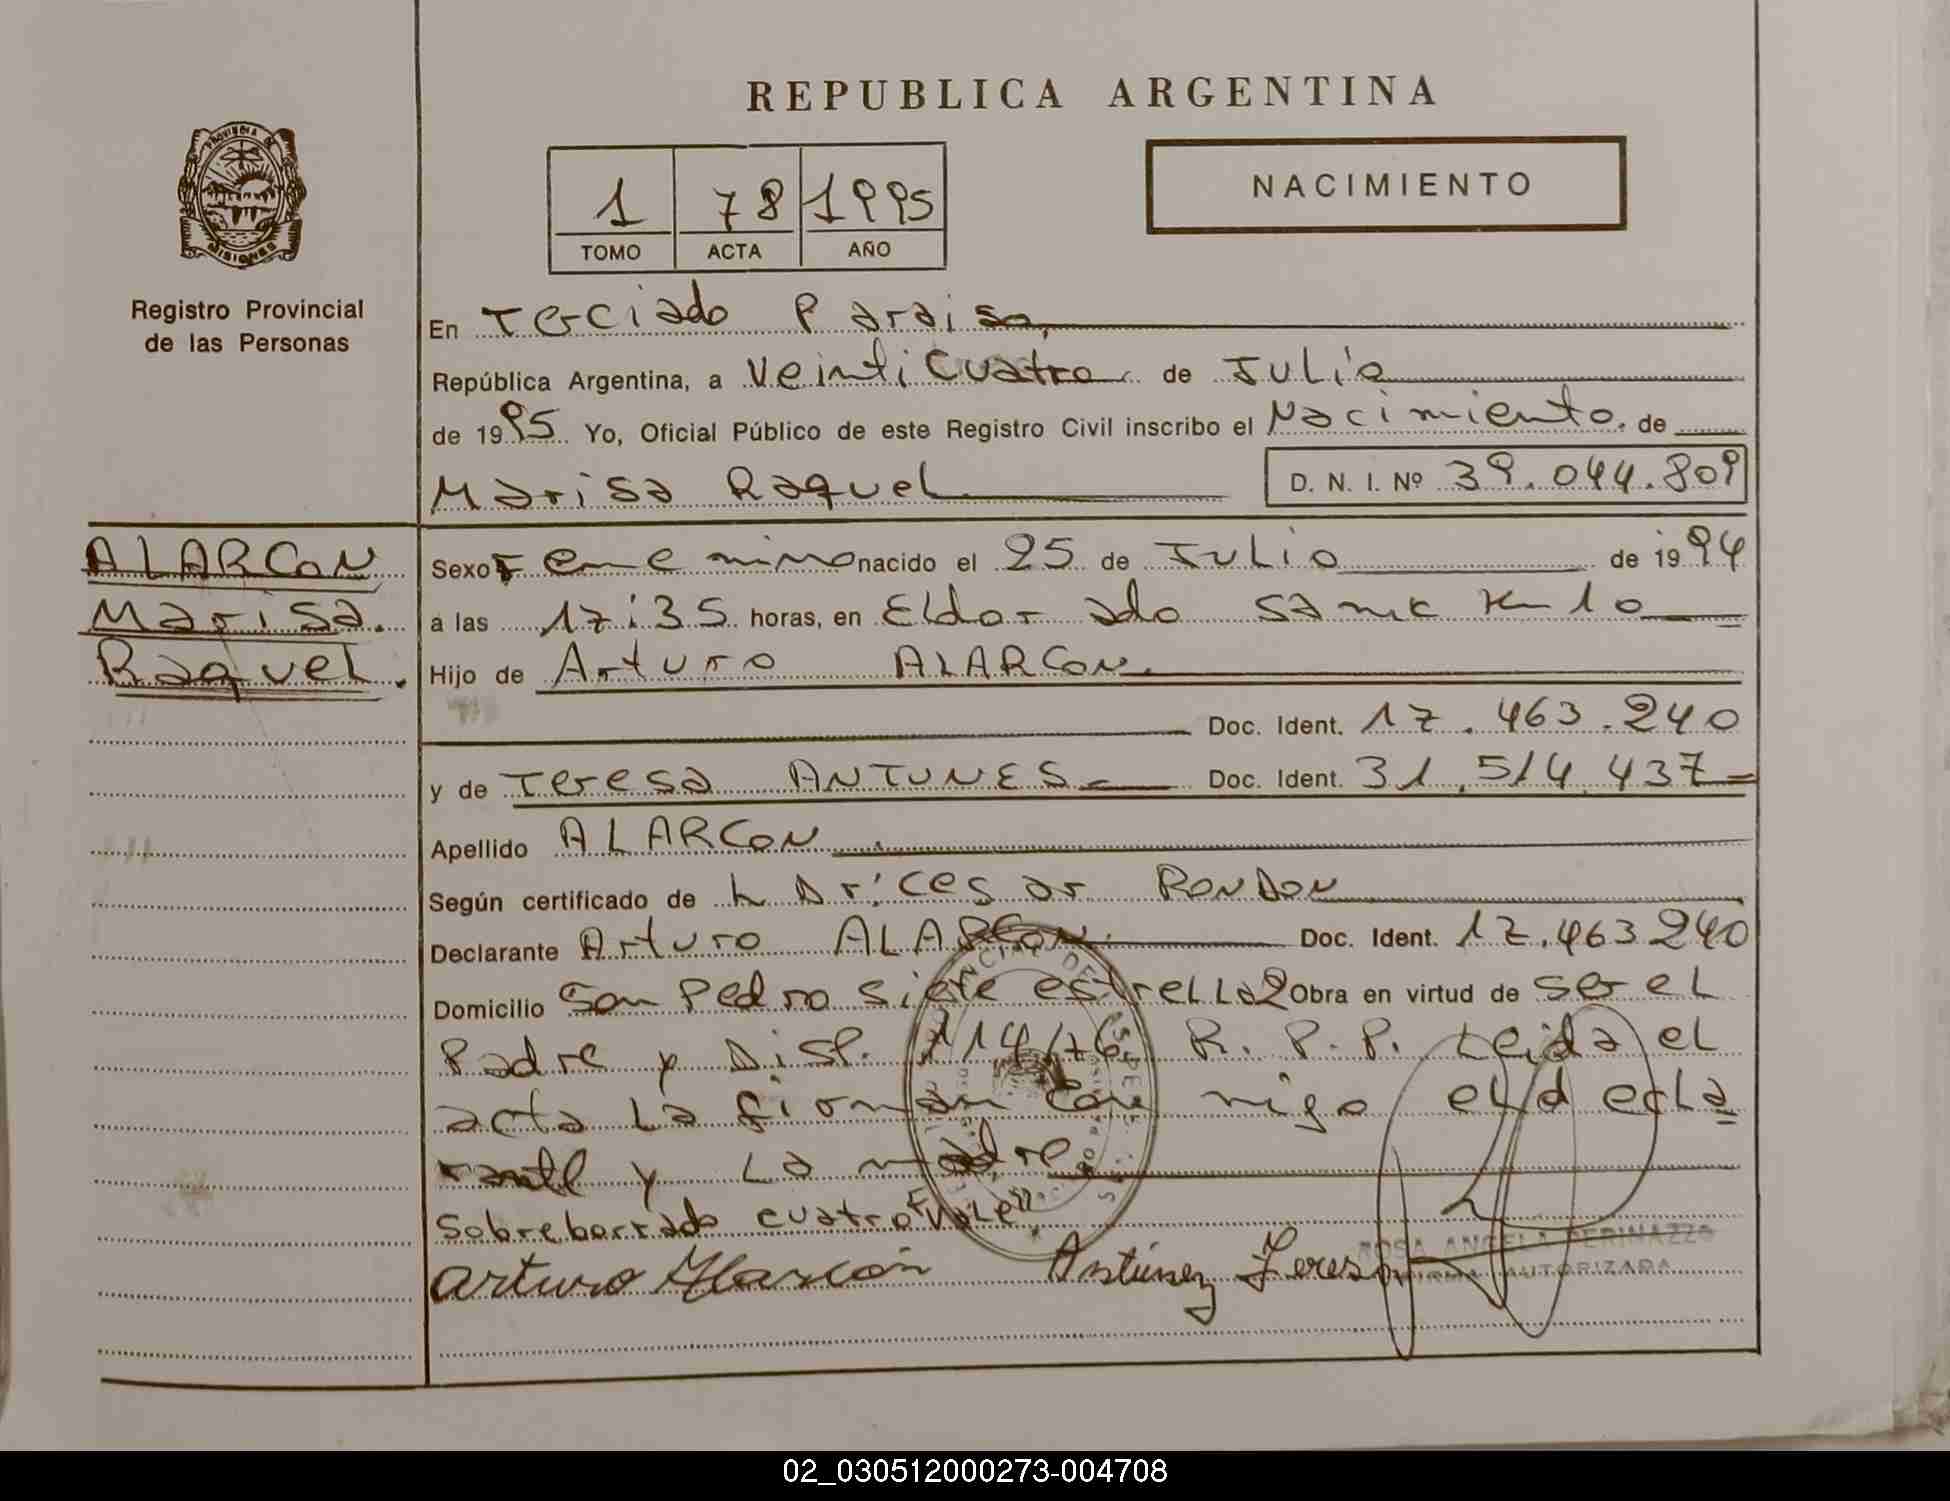 REPUBLICA ARGENTINA
PROVINCIA DE
MISIONES
Registro Provincial
de las Personas
1 78 1995
TOMO ACTA AÑO
NACIMIENTO
En Terciado Paraiso,
República Argentina, a Veinti Cuatro de Julio
de 1995 Yo, Oficial Público de este Registro Civil inscribo el Nacimiento. de
Marisa Raquel D. N. I. Nº 39.044.809
ALARCON
Marisa.
Raquel.
Sexo Femenino nacido el 25 de Julio de 1994
a las 17:35 horas, en Eldorado
Hijo de Arturo ALARCON.
Doc. Ident. 17.463.240
y de Teresa ANTUNES Doc. Ident. 31.514.437
Apellido ALARCON
Según certificado de Dr: Cesar RONDON
Declarante Arturo ALARCON. Doc. Ident. 17.463240
Domicilio San Pedro siete estrellas Obra en virtud de ser el
Padre y Disp. 114/76 R. P. P. Leida el
acta La firman con migo el decla
rante y La madre
Sobreborrado cuatro "Vale".
Arturo Alarcón Antúnez Teresa
ROSA ANGELA PERINAZZO
FIRMA AUTORIZADA
02_030512000273-004708